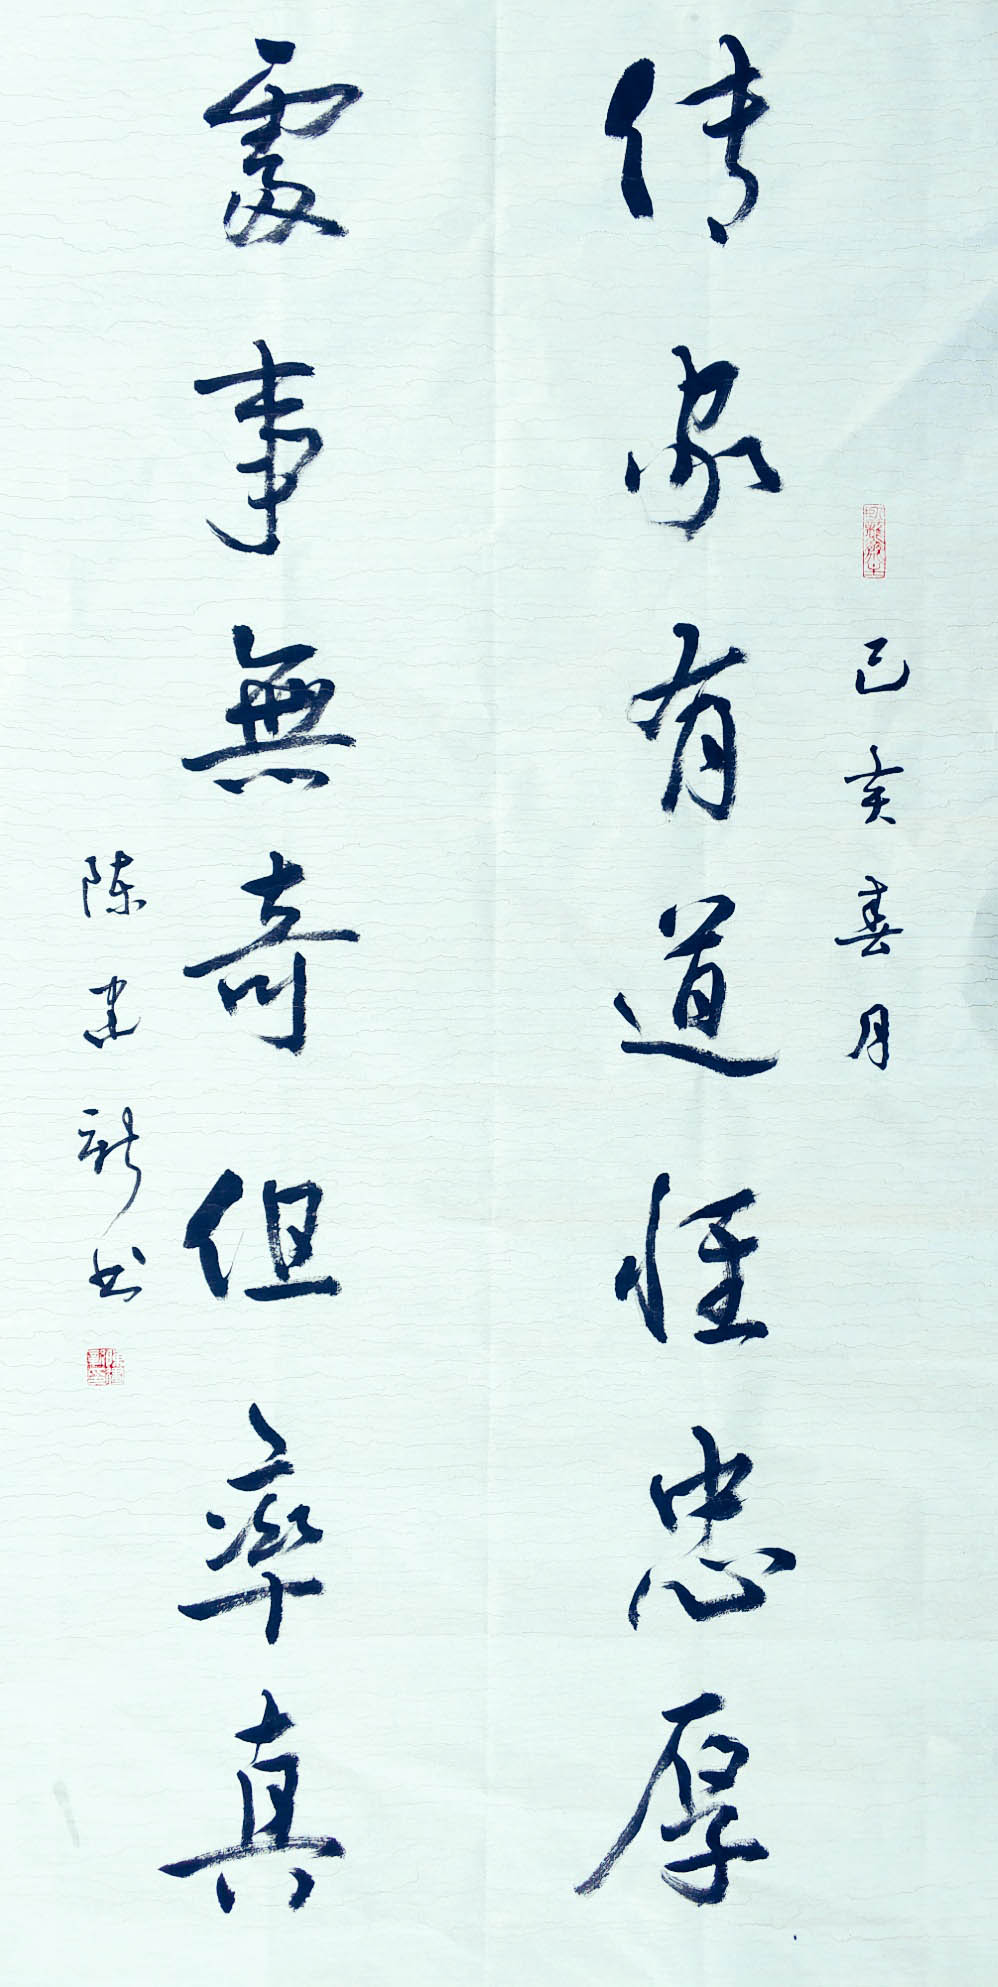 己亥春月
传家有道惟忠厚
處事無奇但率真
陈建新书